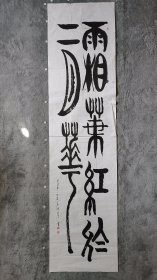 霜葉紅於
二月華